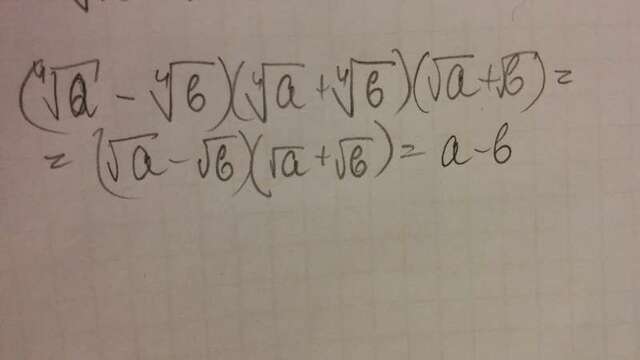 (⁴√a - ⁴√b)(⁴√a + ⁴√b)(√a + √b) =
= (√a - √b)(√a + √b) = a - b